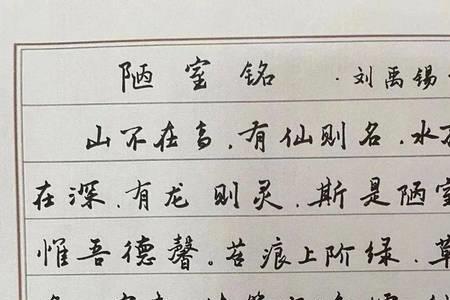 陋室铭 · 刘禹锡
山不在高,有仙则名.水
在深.有龙则灵.斯是陋室
惟吾德馨。苔痕上阶绿.草